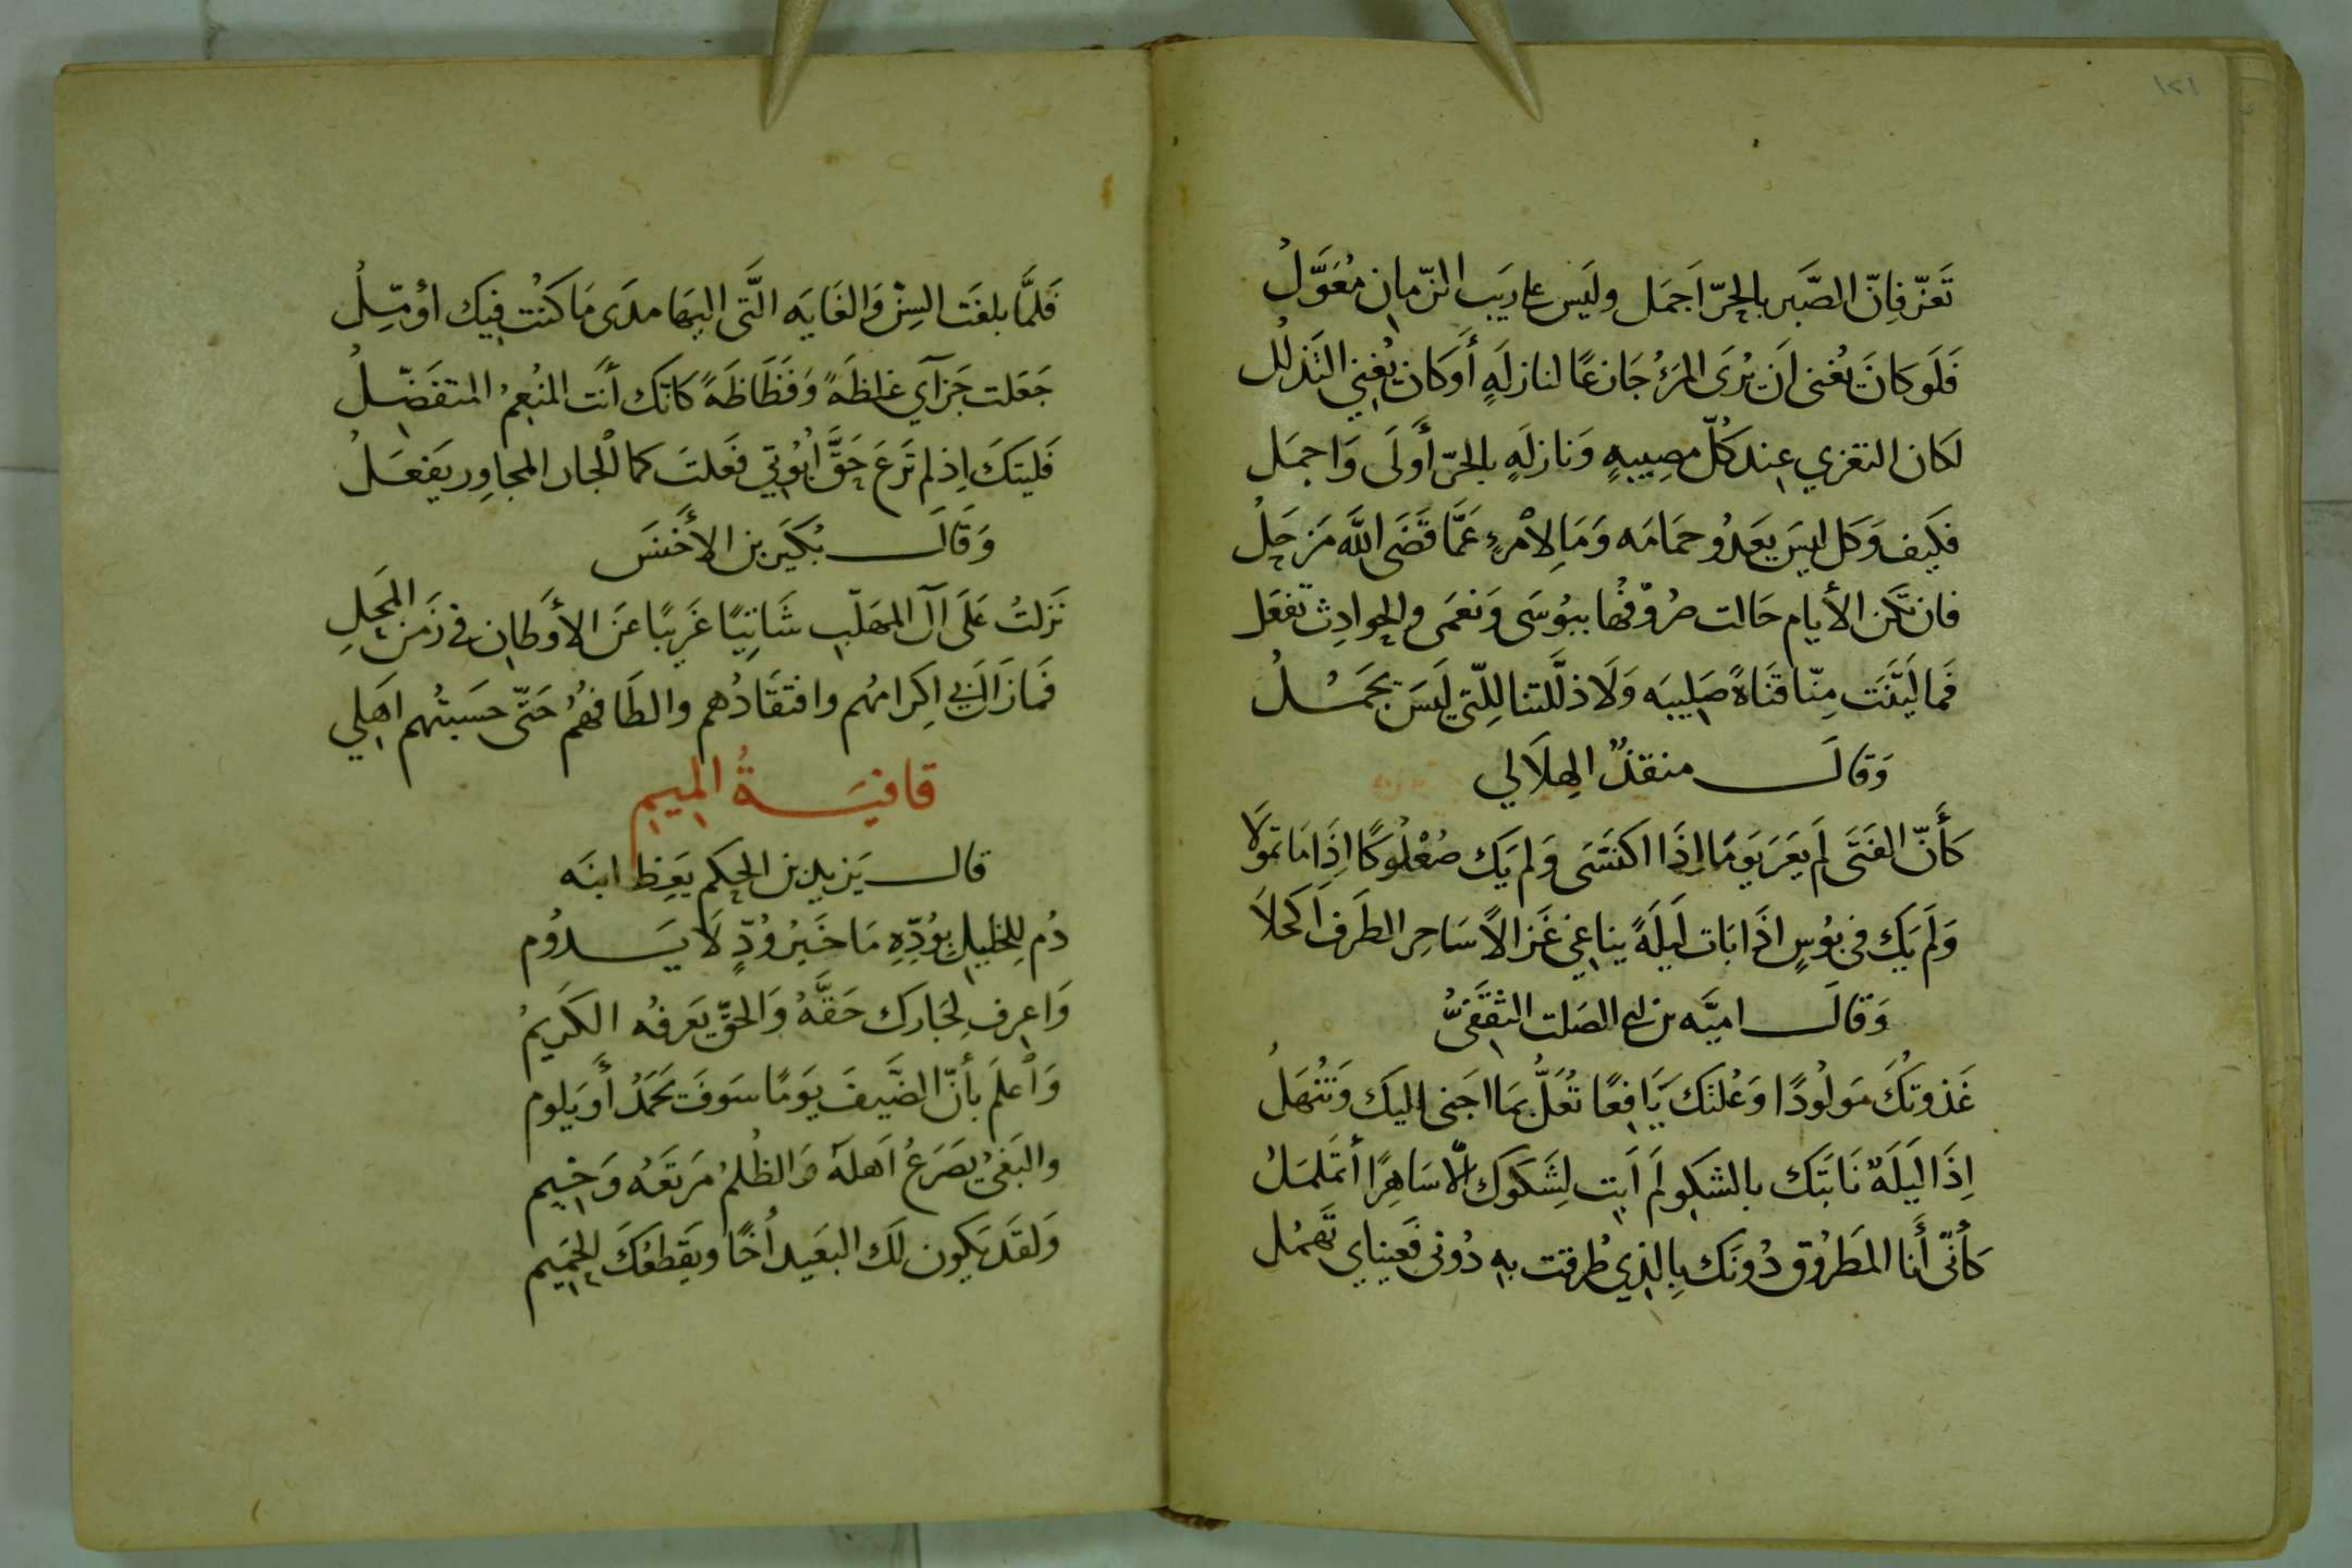 ١٢١
تَعَزّ فَإنّ الصَّبَر بالحِرّ اَجمَل ولَيَس على رَيَب الزّمانِ مُعَوَّلُ
فَلَو كانَ يُغنى اَن يُرَى المَرءُ جَازعًا لنازلَهٍ أَو كَان يُغنِي التَذلُل
لَكان التعَزي عِند كُلّ مصِيبهٍ وَنازلَهٍ بالحرّ أَولَى وَاجمَل
فكَيف وَكل لَيسَ يَعدُو حمَامَه وَمَا لِامْرءٍ عَمَّا قَضَى اللَّه مَزحَلُ
فان تكن الأيام حَالت صُرُوفُها ببُوسَى وَنعمَى والحوادِث تَفعَل
فَما لَيّنَت مِنّا قنَاةً صَلِيبَه وَلَا ذلَّلَتنا لِلّتى لَيسَ تجمَـــلُ
وَقالَــــ منقذٌ الهِلَالي
كَأنّ الفَتَى لَم يعَرَ يَومًا اِذَا اكتسَى وَلم يَك صُعْلُوكًا اِذَا مَا تمَوّلا
وَلَم يَك فى بوُسٍ اذَا بَات لَيلَةً يناغي غَزالًا سَاحِر الطَرفِ اَكحَلا
وَقالَــــ اميَّه بن ابى الصَلت الثقَفىُّ
غَذوتكَ مَولُودًا وَعُلتَك يَافِعًا تُعَلُّ بمَا اجَنى اليَك وَتَنْهَلُ
اِذَا لَيلَةٌ نَابَتك بالشكو لَم اَبت لِشَكوَكَ اِلّا سَاهِرًا أتمَلمَلُ
كَأنّى أَنا المَطَرُوق دُونَك بِالذِي طُرقت بهِ دُونى فعَيناي تَهمُل
فَلمَّا بلغَت السِنّ وَالغَايَه الَّتى اليهَا مدَى مَا كَنُت فيَك اوُمّـِلُ
جَعَلت جَزآي غلظَةً وَفَظَاظَةً كانّك أَنَت المنُعِمُ المتفَضّـلُ
فَليَتكَ اِذ لم تَرعَ حَقَّ ابُوُتي فَعَلتَ كما الْجار المجاوِر يَفعَـلُ
وَقَالَــــ بُكَير بن الأخَنسَ
نَزلتُ عَلَى آل المهَلّب شَاتِيًا غَرِيبًا عَن الأوطَانِ فى زَمَن المَحلِ
فَمَازَال بى اِكَرامُهم وافتقَادُهم والطَافهُمُ حَتّى حسَبتُهم اَهلي
قافيَـــةُ الميم
قالــــ يَزيد بن الحكم يَعِظ ابنَه
دُم لِلخَليلِ بِوُدِّهِ مَا خَيرُ وُدٍّ لَا يَــدوُم
وَاعِرف لِجَارك حَقَّهُ وَالحقّ يَعرفُه الكَريمُ
وَاْعلَم بأنّ الضَّيفَ يَومًا سَوفَ يَحَمدُ أَو يَلوم
والبَغىُ يَصَرعُ اَهلَهُ وَالظُلمُ مَرتَعُه وَخيم
وَلقَد يَكون لَك البعَيد اَخًا ويَقطَعُكَ الحَميم